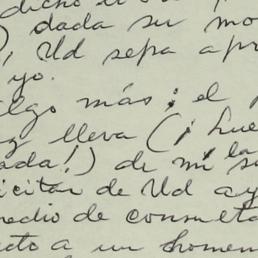 dicho
) dada su mo
, Ud sepa apr
yo.
algo más; el
lleva (¡hue
ada!) de mi
la
icitar de Ud ay
medio de consulta
cto a un homen